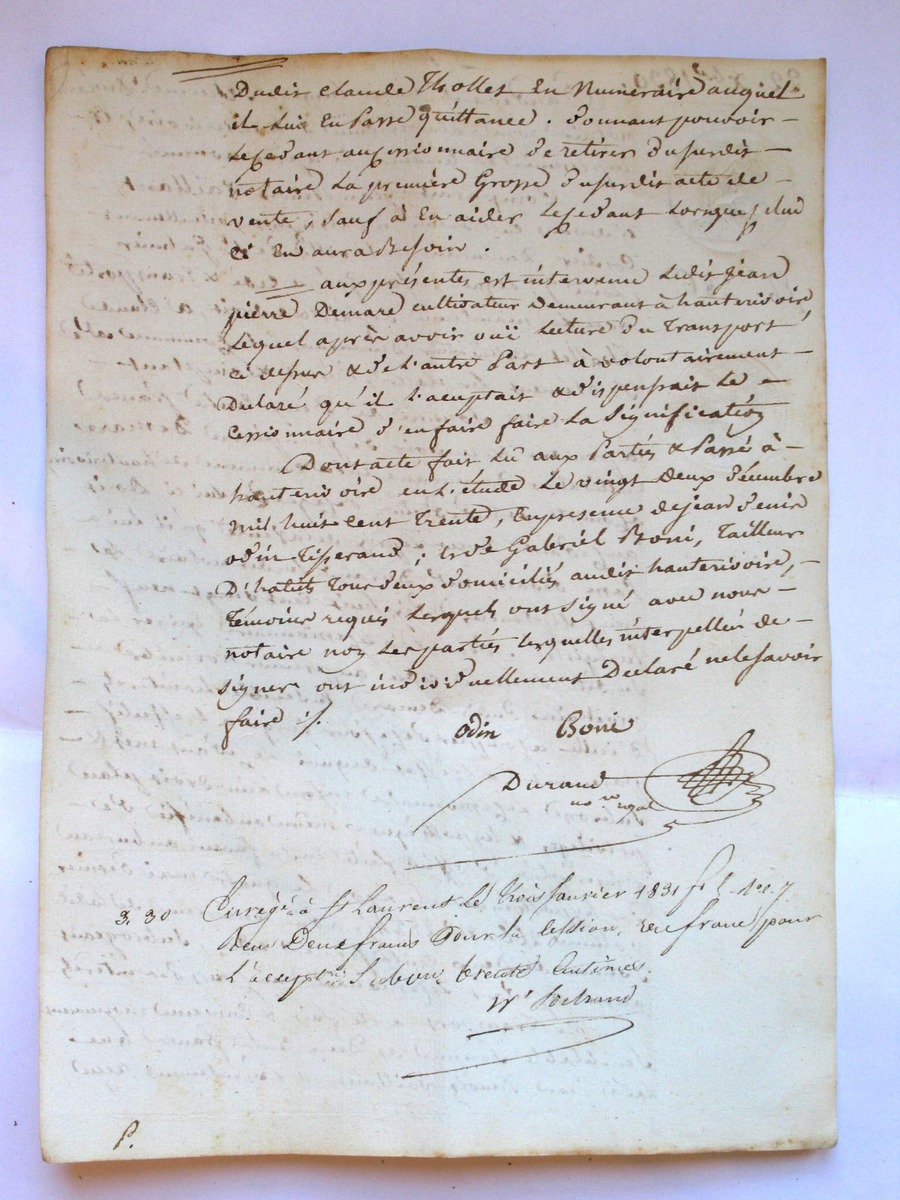 Dudit Claude Tholles En Numéraire auquel
il Lui En Passe quittance. Donnant pouvoir –
Le Cédant au Cessionnaire de retirer Dususdit –
notaire La première Grosse Dusurdit acte de –
vente, Sauf à En aider Le Cédant Lorsque celui
ci En aura Besoin.
aux présentes est intervenu Ledit Jean
pierre Demare cultivateur demeurant à hauterivoire,
Lequel après avoir ouï Lecture Du Transport
ci dessus & de L'autre Part à volontairement –
Déclaré qu'il l'aceptait & dispensait Le –
Cessionnaire d'en faire faire La Signification
Dont acte fait Lu aux Parties & Passé à –
hauterivoire en L'étude Le vingt Deux Décembre
mil huit cent Trente, En présence de jean Denis
odin Tisserand, & de Gabriel Boni, Tailleur
D'habits Tous deux domiciliés audit hauterivoire, –
Témoins requis Lesquels ont signé avec nous –
notaire non Les parties Lesquelles interpellées de –
signer ont individuellement Déclaré ne le savoir
faire ./.
odin Boni
Durand
no.re royal
3. 30 Enregé à St Laurent Le trois Janvier 1831 fo
Deux francs Pour la Cession, un franc pour
L'accept.on trente Centimes.
P.